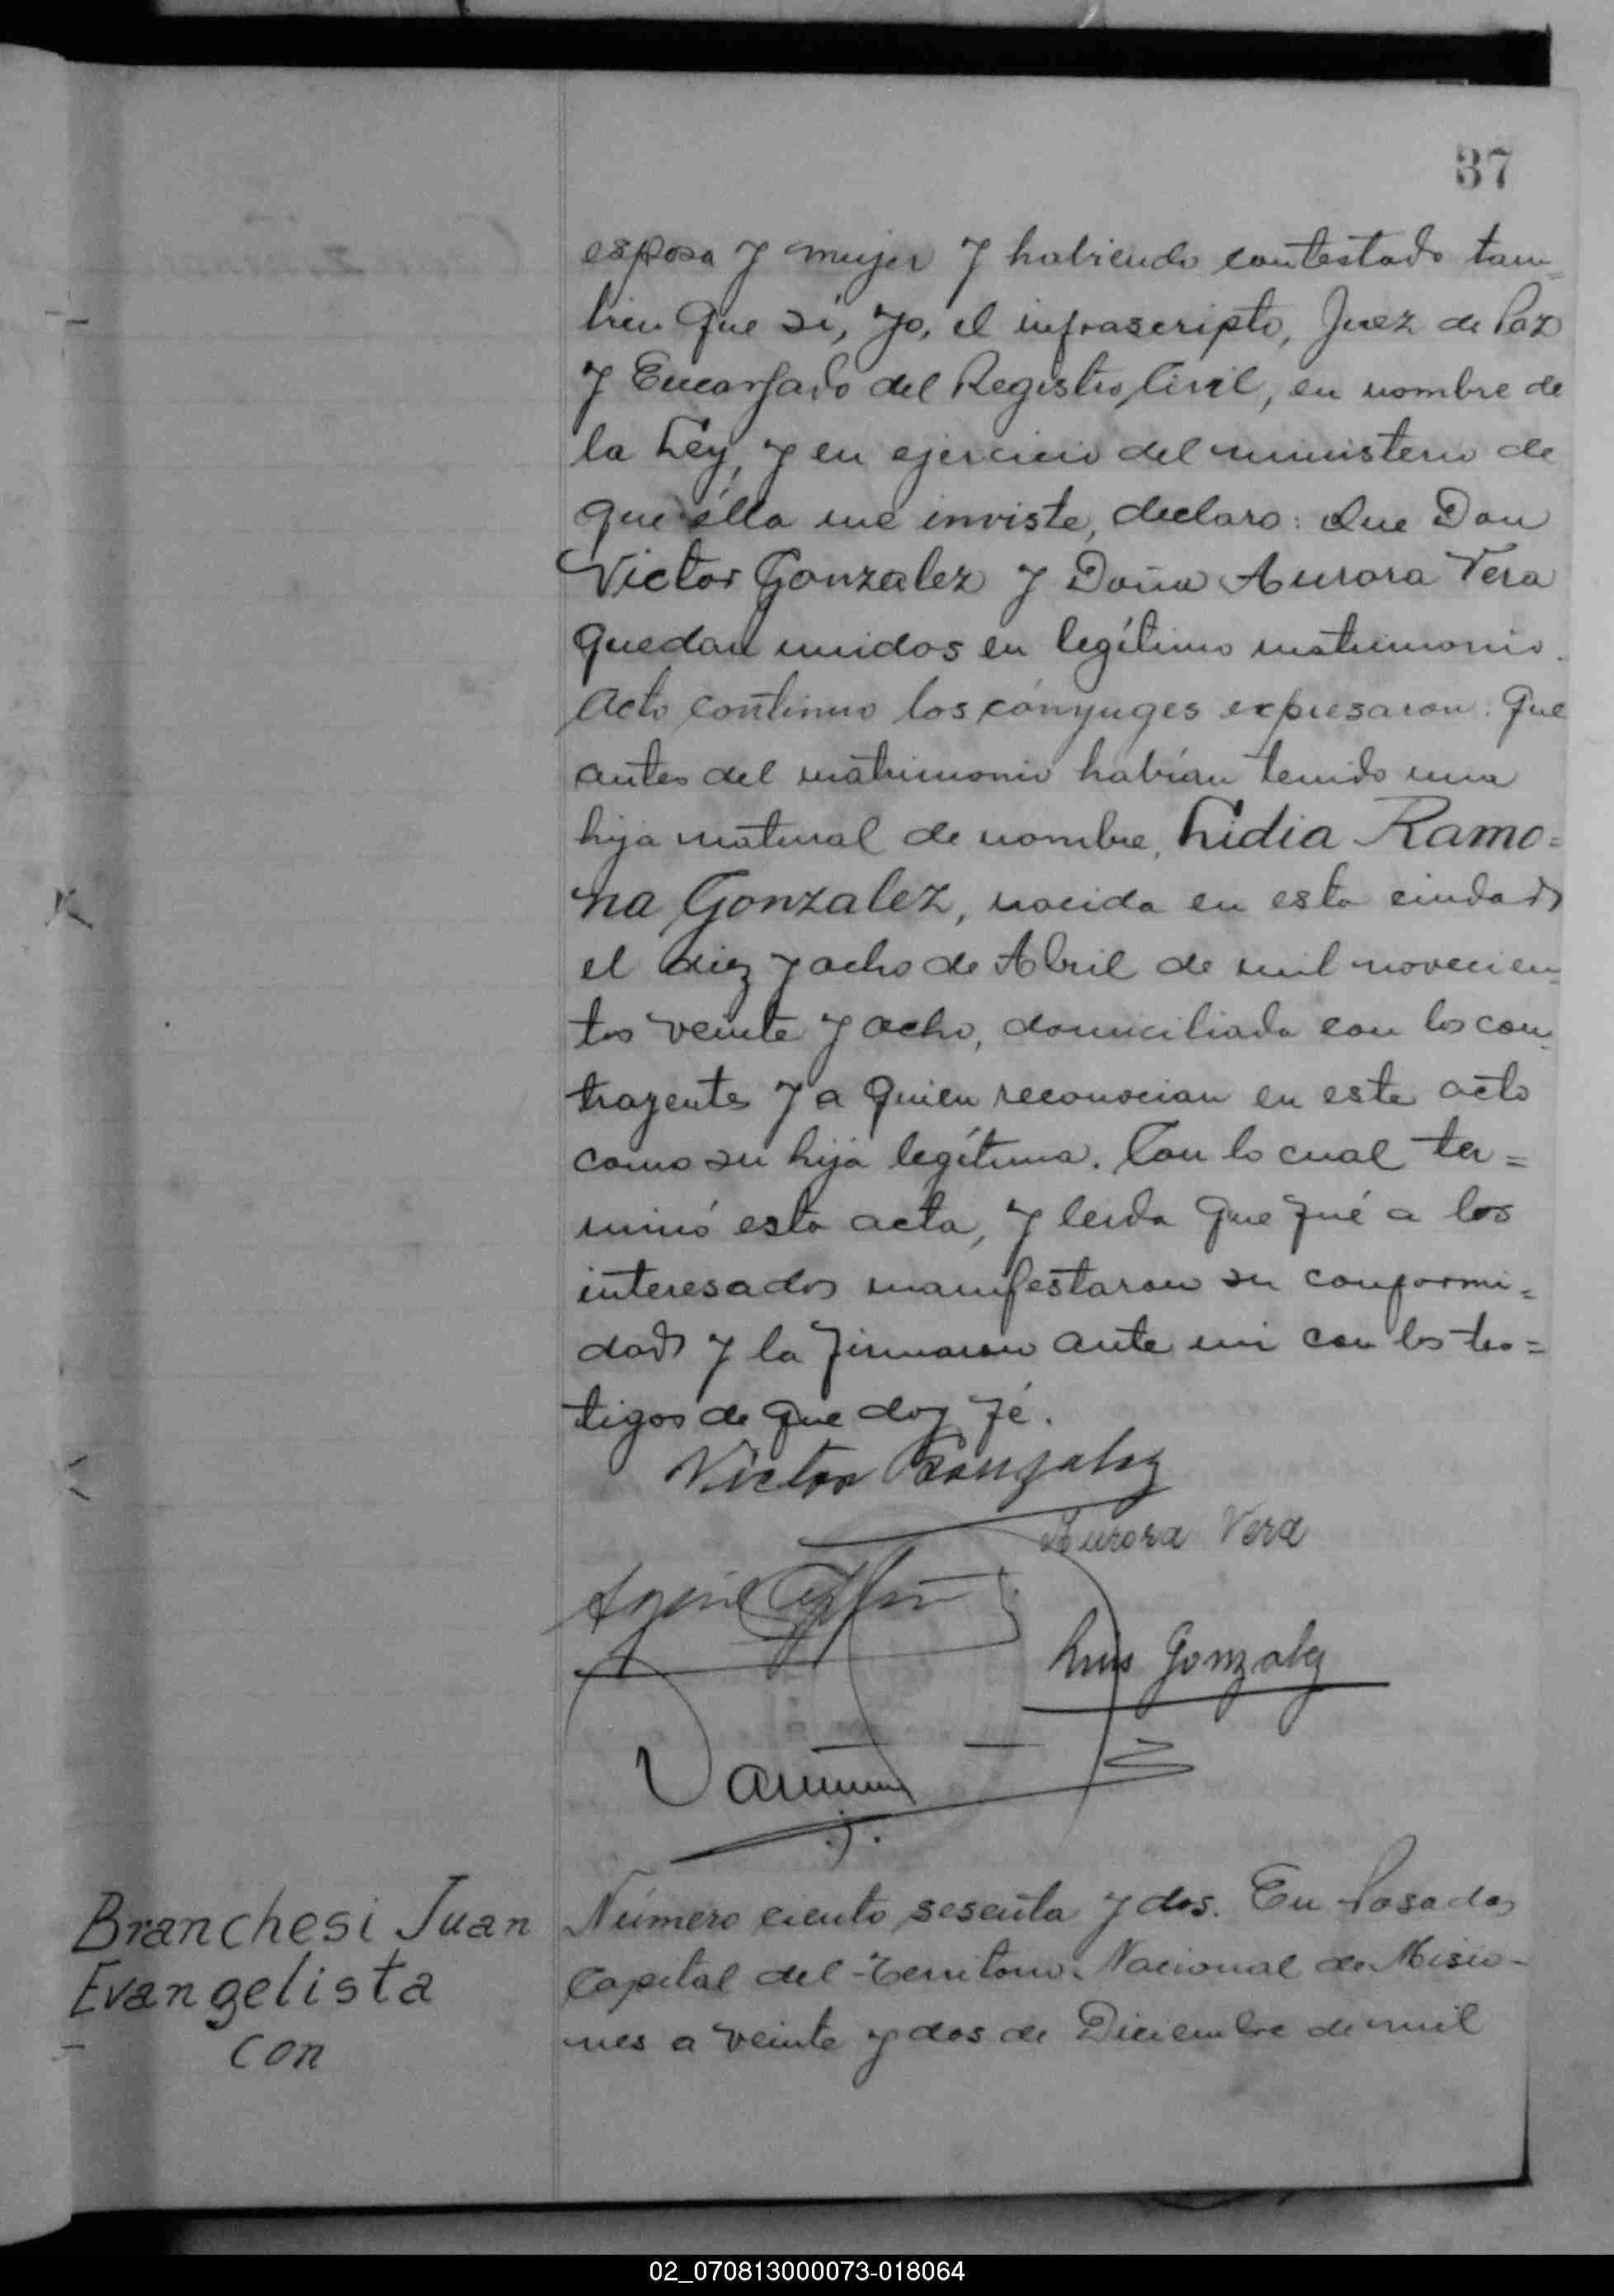 37
esposa y mujer y habiendo contestado tam-
bien que si, yo, el infrascripto, Juez de Paz
y Encargado del Registro Civil, en nombre de
la Ley, y en ejercicio del ministerio de
que élla me inviste, declaro: Que Don
Victor Gonzalez y Doña Aurora Vera
quedan unidos en legítimo matrimonio.
Acto continuo los cónyuges expresaron: Que
antes del matrimonio habían tenido una
hija natural de nombre, Lidia Ramo=
na Gonzalez, nacida en esta ciudad
el diez y ocho de Abril de mil novecien-
tos veinte y ocho, domiciliada con los con-
trayentes y a quien reconocian en este acto
como su hija legítima. Con lo cual ter=
minó esta acta, y leida que fué a los
interesados manifestaron su conformi=
dad y la firmaron ante mi con los tes=
tigos de que doy fé.
Victor Gonzalez
Aurora Vera
Luis Gonzalez
Branchesi Juan
Evangelista
con
Número ciento sesenta y dos. En Posadas
Capital del Territorio Nacional de Misio-
nes a veinte y dos de Diciembre de mil
02_070813000073-018064